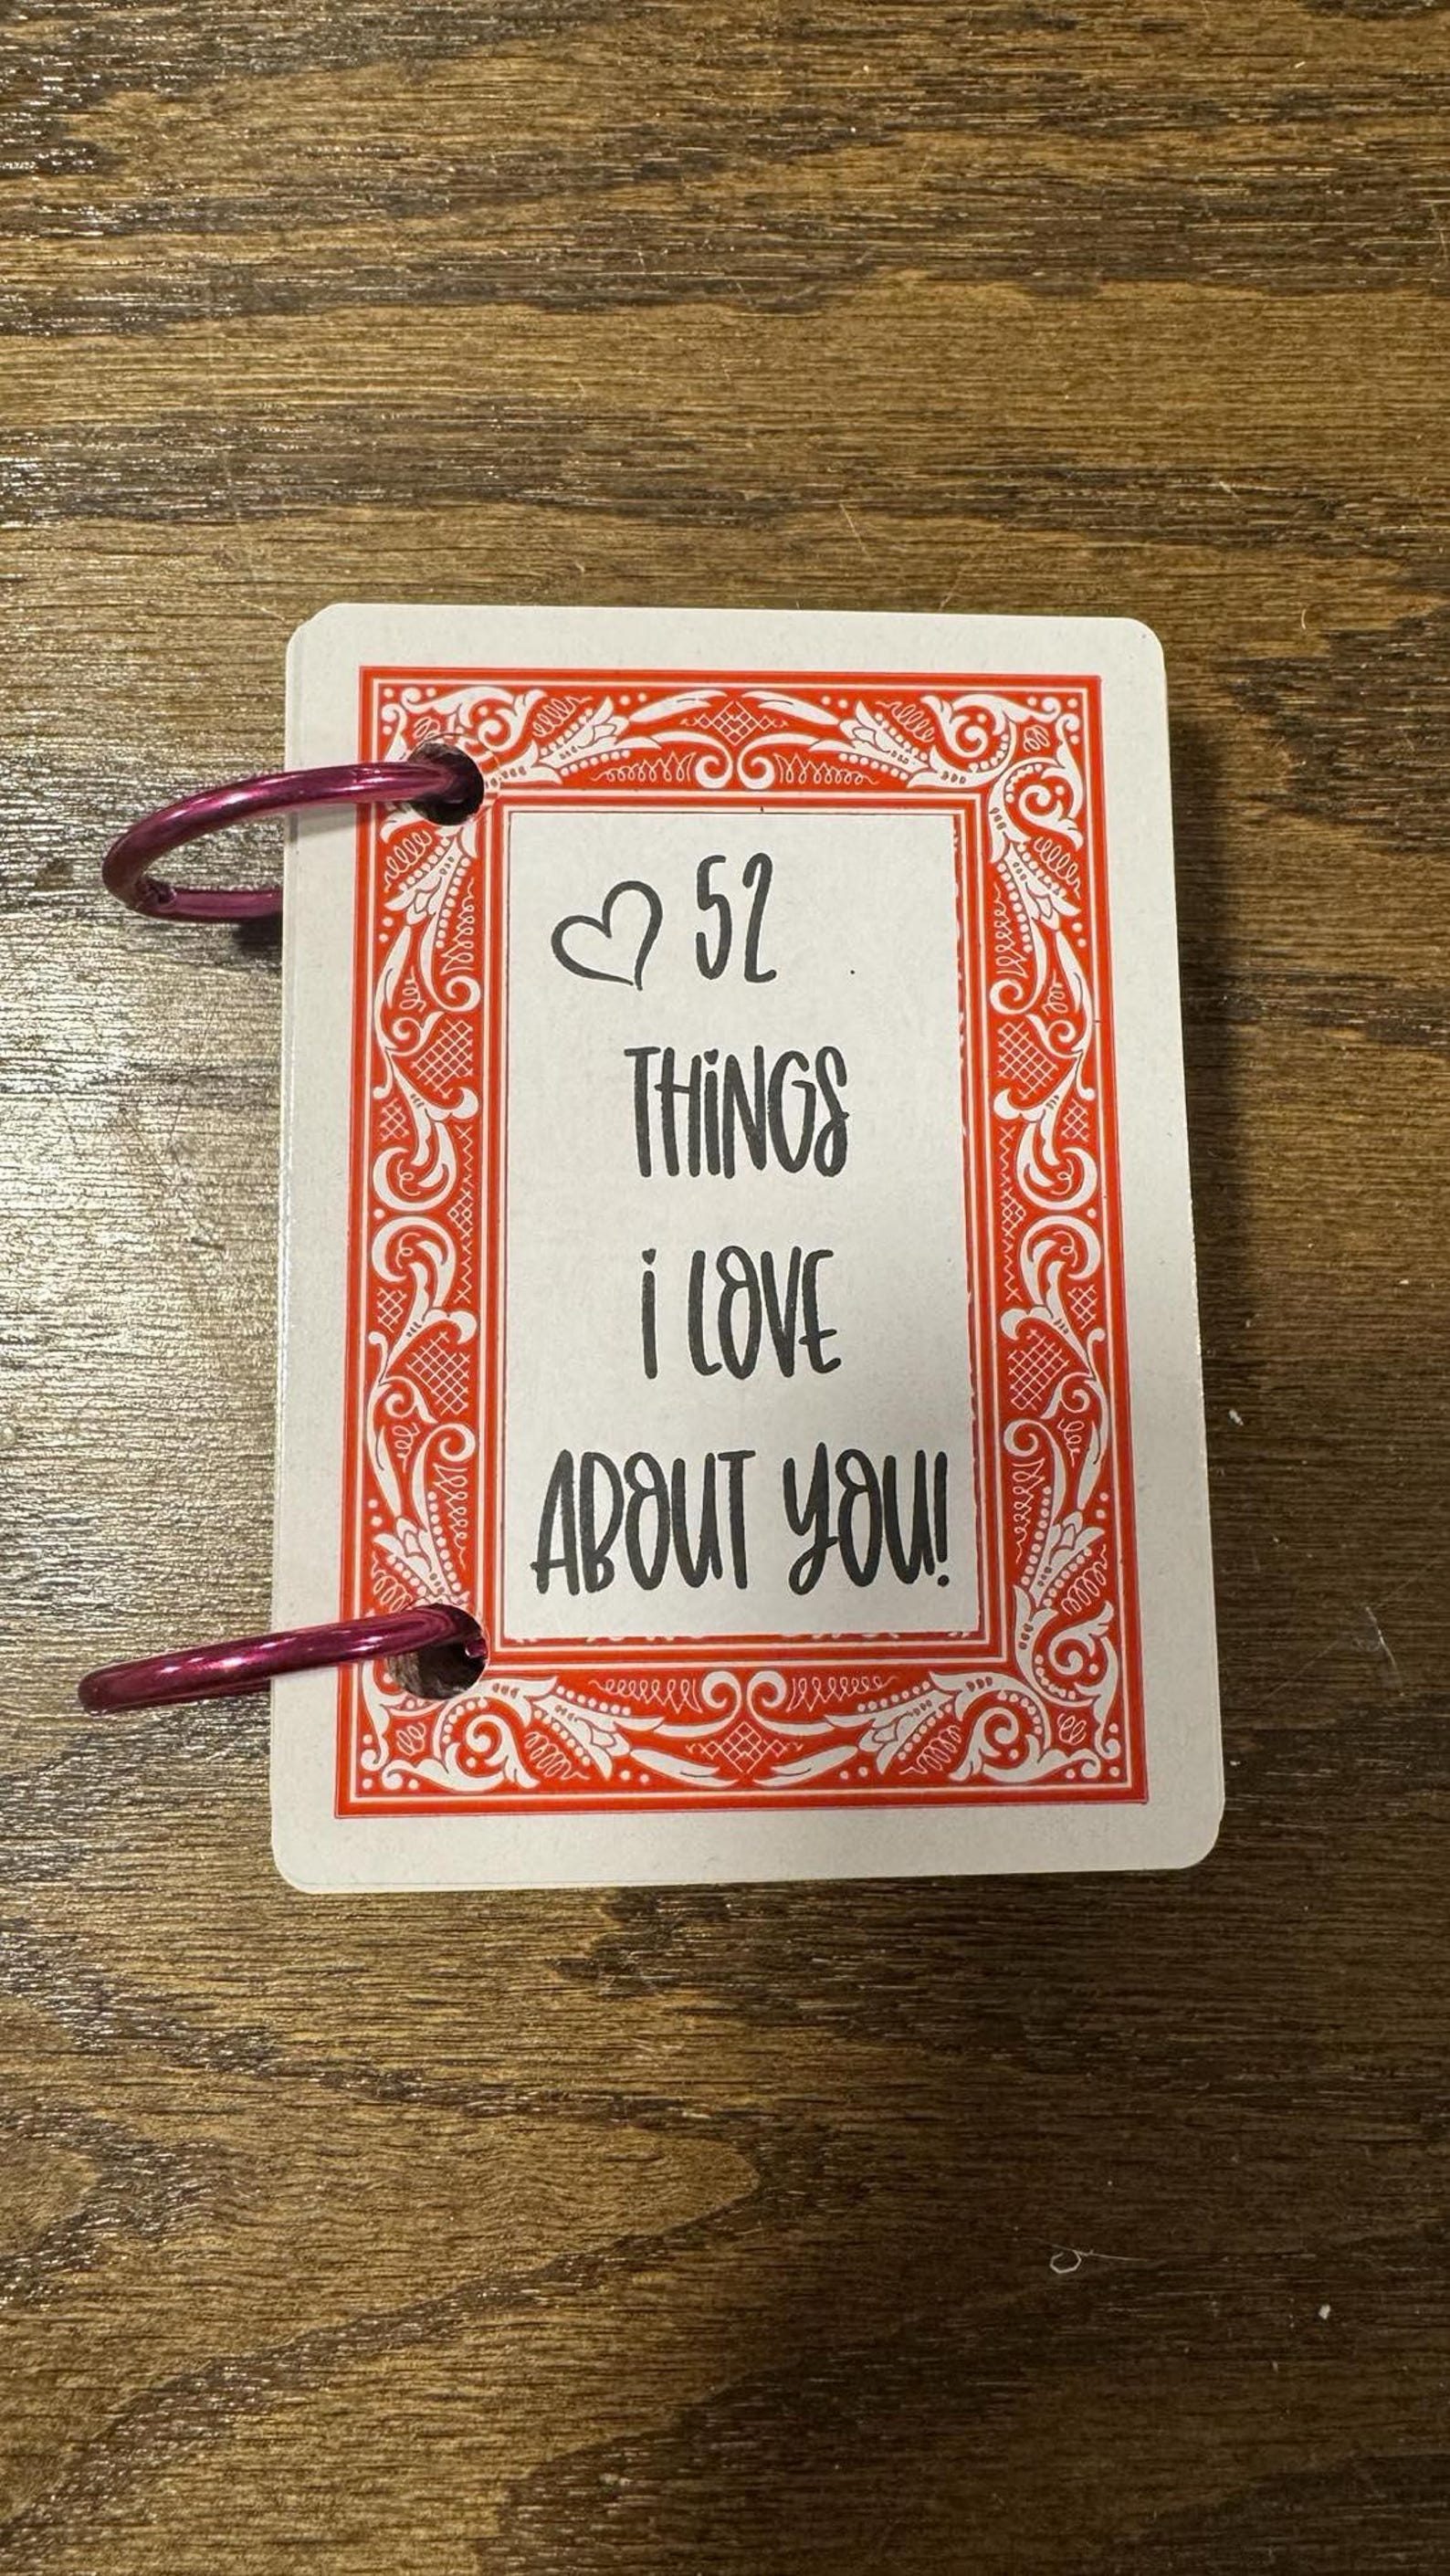 52
THiNGS
i LOVE
ABOUT YOU!